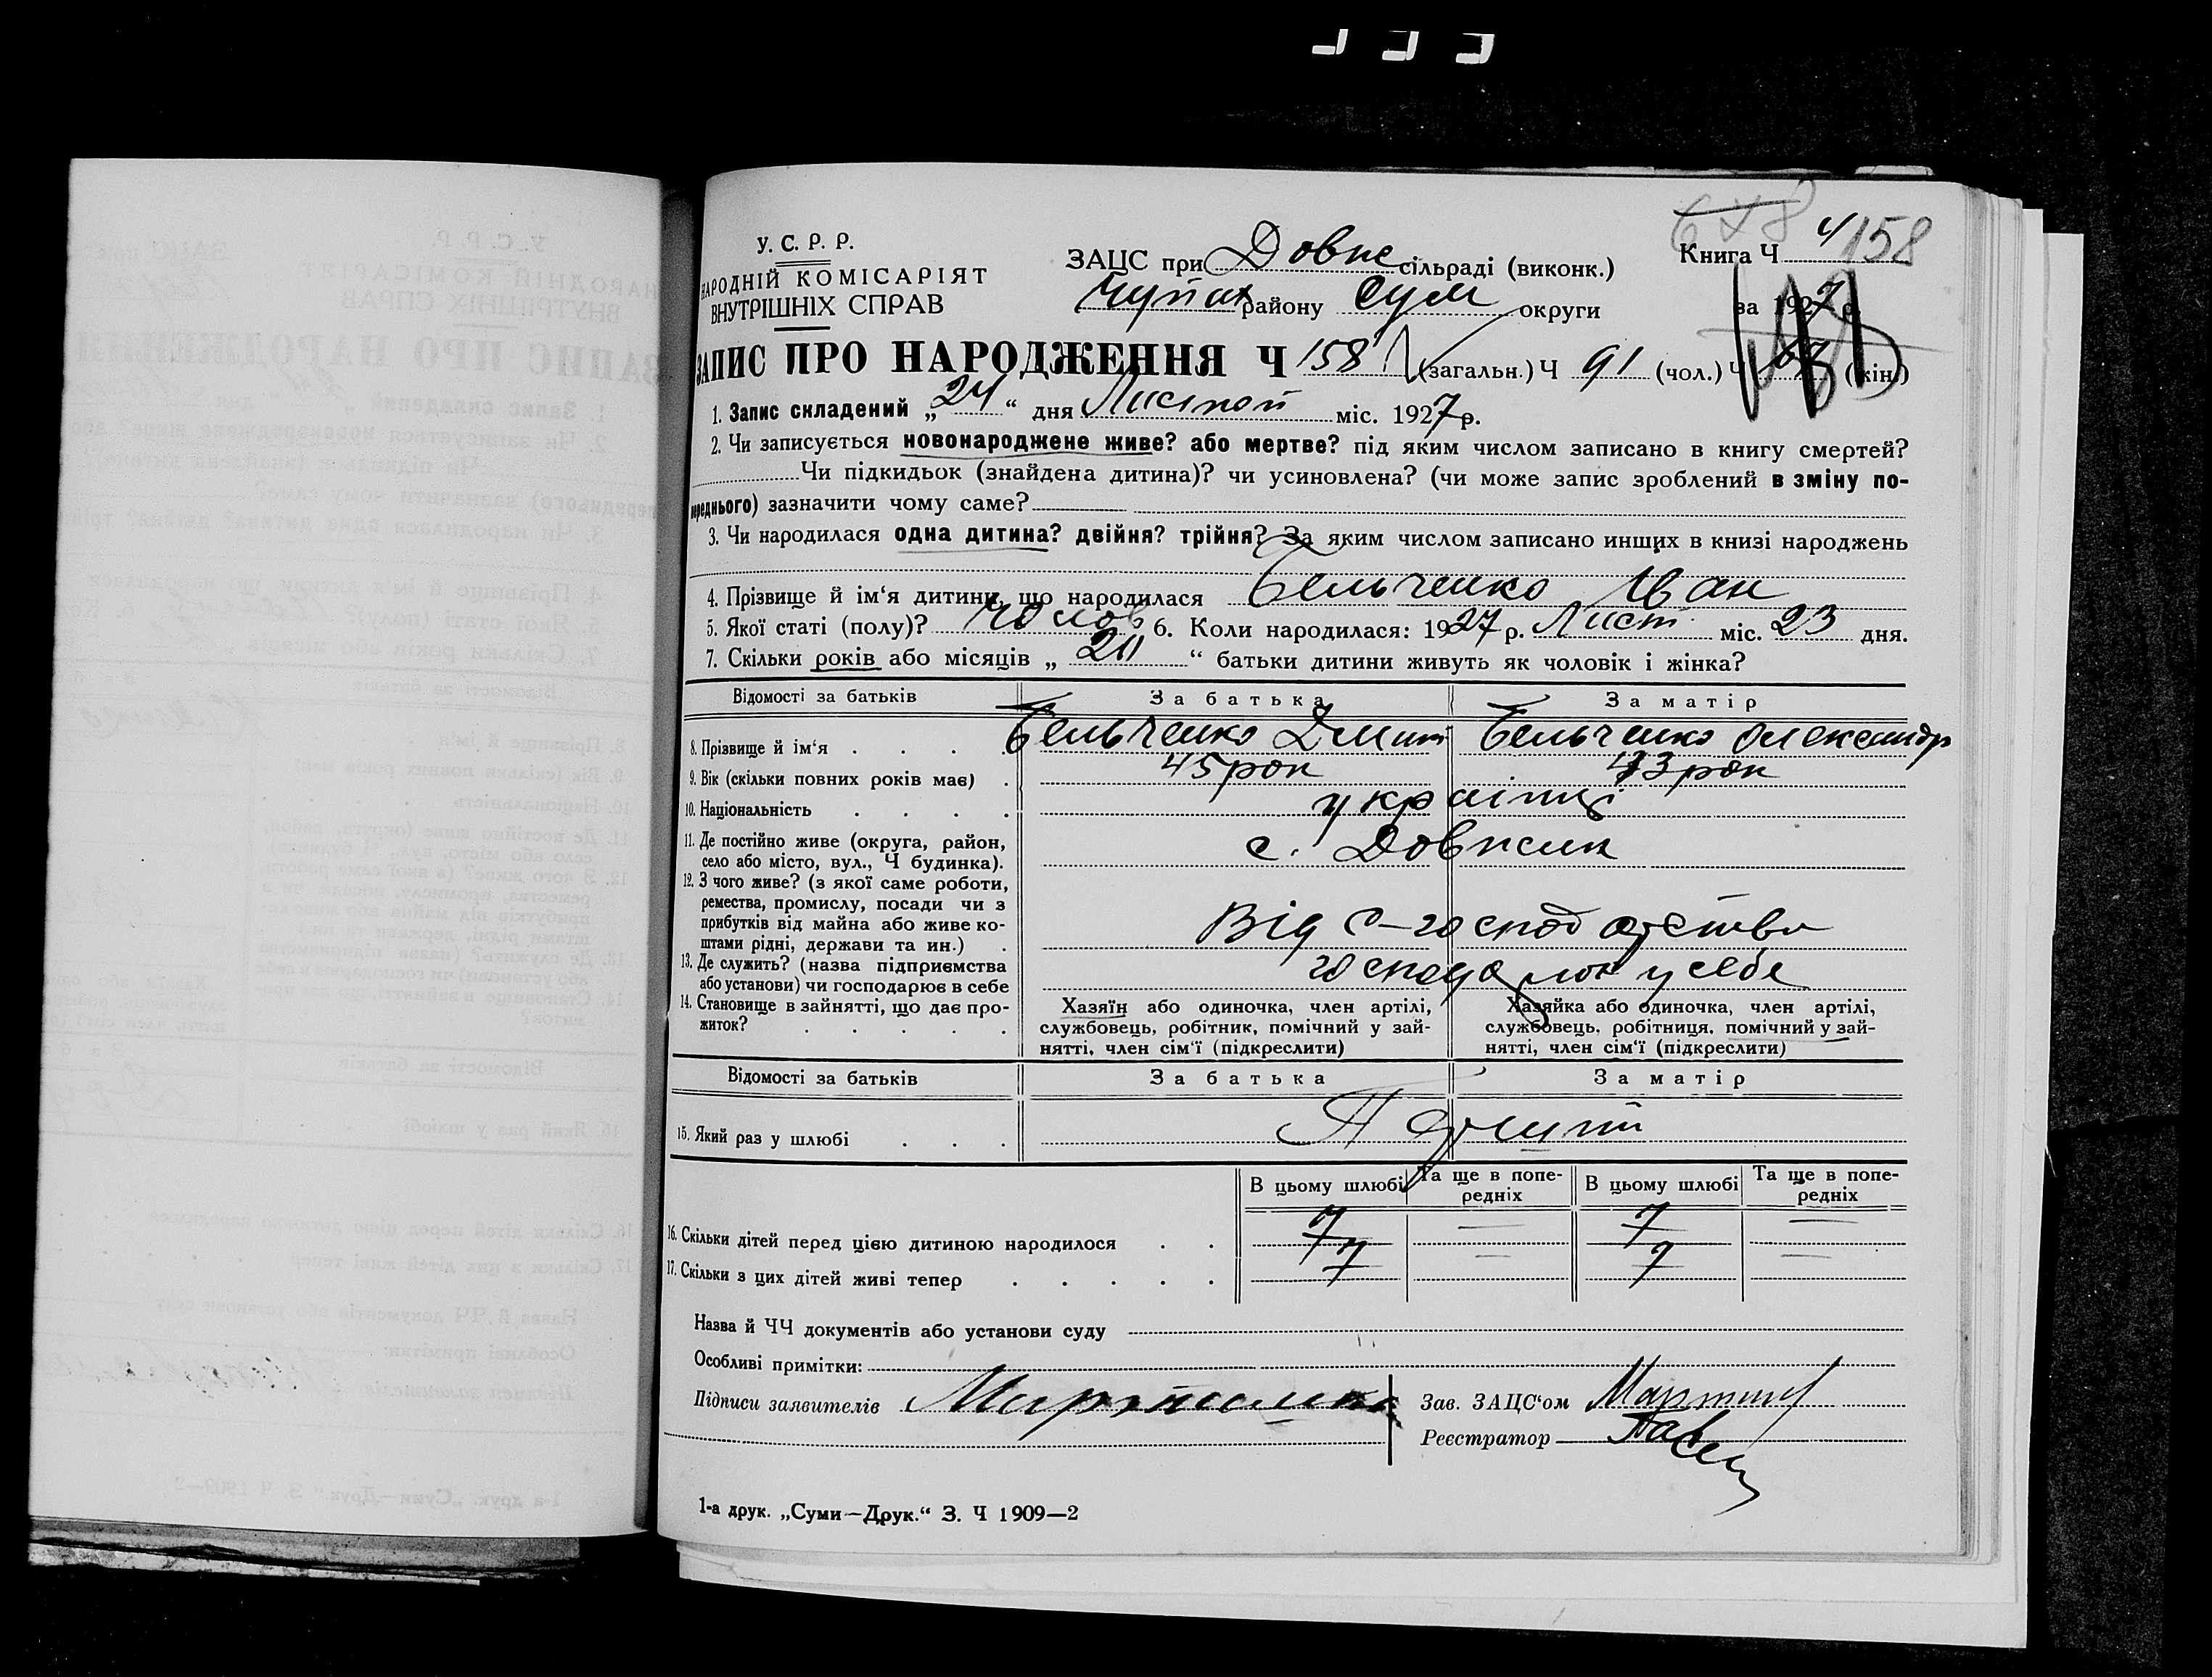 У. С. Р. Р.
НАРОДНІЙ КОМІСАРІЯТ
ВНУТРІШНІХ СПРАВ
ЗАЦС при Довж сільраді (виконк.)
Чупах району Сум округи
678 158
Книга Ч 4
за 1927 р.
ЗАПИС ПРО НАРОДЖЕННЯ Ч 158 (загальн.) Ч 91 (чол.) Ч 67 (жін.)
1. Запис складений „24“ дня Листоп міс. 1927 р.
2. Чи записується новонароджене живе? або мертве? під яким числом записано в книгу смертей?
Чи підкидьок (знайдена дитина)? чи усиновлена? (чи може запис зроблений в зміну по-
переднього) зазначити чому саме?
3. Чи народилася одна дитина? двійня? трійня? За яким числом записано инших в книзі народжень
4. Прізвище й ім‘я дитини, що народилася Бельченко Іван
5. Якої статі (полу)? Чолов 6. Коли народилася: 1927 р. Лист міс. 23 дня.
7. Скільки років або місяців „ 20 “ батьки дитини живуть як чоловік і жінка?
Відомості за батьків За батька За матір
8. Прізвище й ім‘я . . . Бельченко Дмит Бельченко Олександр
9. Вік (скільки повних років має) . 45 рок 43 рок
10. Національність . . . . українці
11. Де постійно живе (округа, район,
село або місто, вул., Ч будинка). с. Довжик
12. З чого живе? (з якої саме роботи,
ремества, промислу, посади чи з
прибутків від майна або живе ко-
штами рідні, держави та ин.) . Від с-господарства
13. Де служить? (назва підприємства
або установи) чи господарює в себе у себе
14. Становище в зайнятті, що дає про-
житок? . . . . .
Хазяїн або одиночка, член артілі,
службовець, робітник, помічний у зай-
нятті, член сім‘ї (підкреслити)
Хазяйка або одиночка, член артілі,
службовець, робітниця, помічний у зай-
нятті, член сім‘ї (підкреслити)
Відомості за батьків За батька За матір
15. Який раз у шлюбі . . .
В цьому шлюбі Та ще в попе-
редніх В цьому шлюбі Та ще в попе-
редніх
16. Скільки дітей перед цією дитиною народилося . . 7 — 7 —
17. Скільки з цих дітей живі тепер . . . . . 7 — 7 —
Назва й ЧЧ документів або установи суду
Особливі примітки:
Підписи заявителів
Зав. ЗАЦС‘ом
Реєстратор
1-а друк. „Суми—Друк.“ З. Ч 1909—2